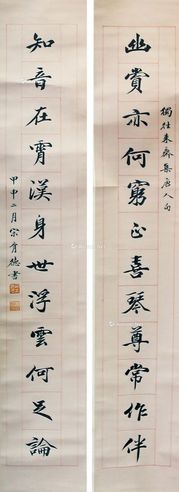 幽赏亦何窮正喜琴尊常作伴
獨往来齋集唐人句
知音在霄漢身世浮雲何足論
甲申二月宗育德書